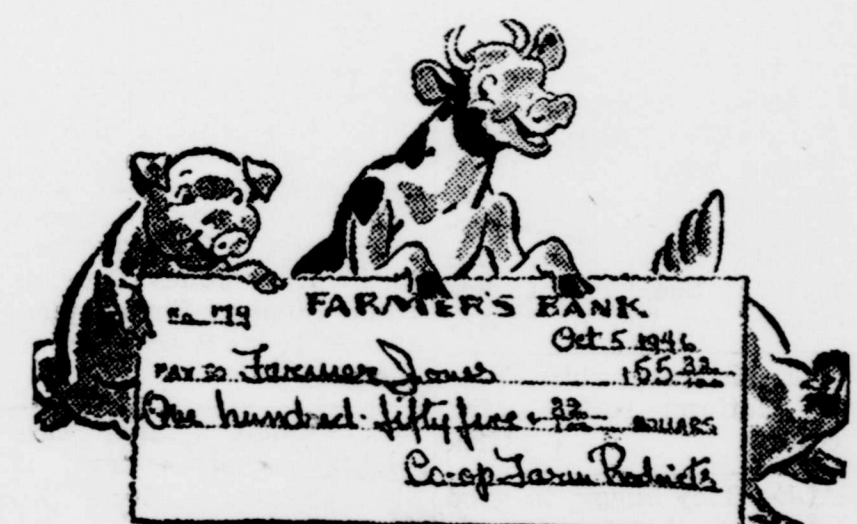 No. 779 FARMER'S BANK
Oct. 5 1946
PAY TO Farmer Jones 155 22/100
One hundred fifty five & 22/100 DOLLARS
Co-op Farm Products